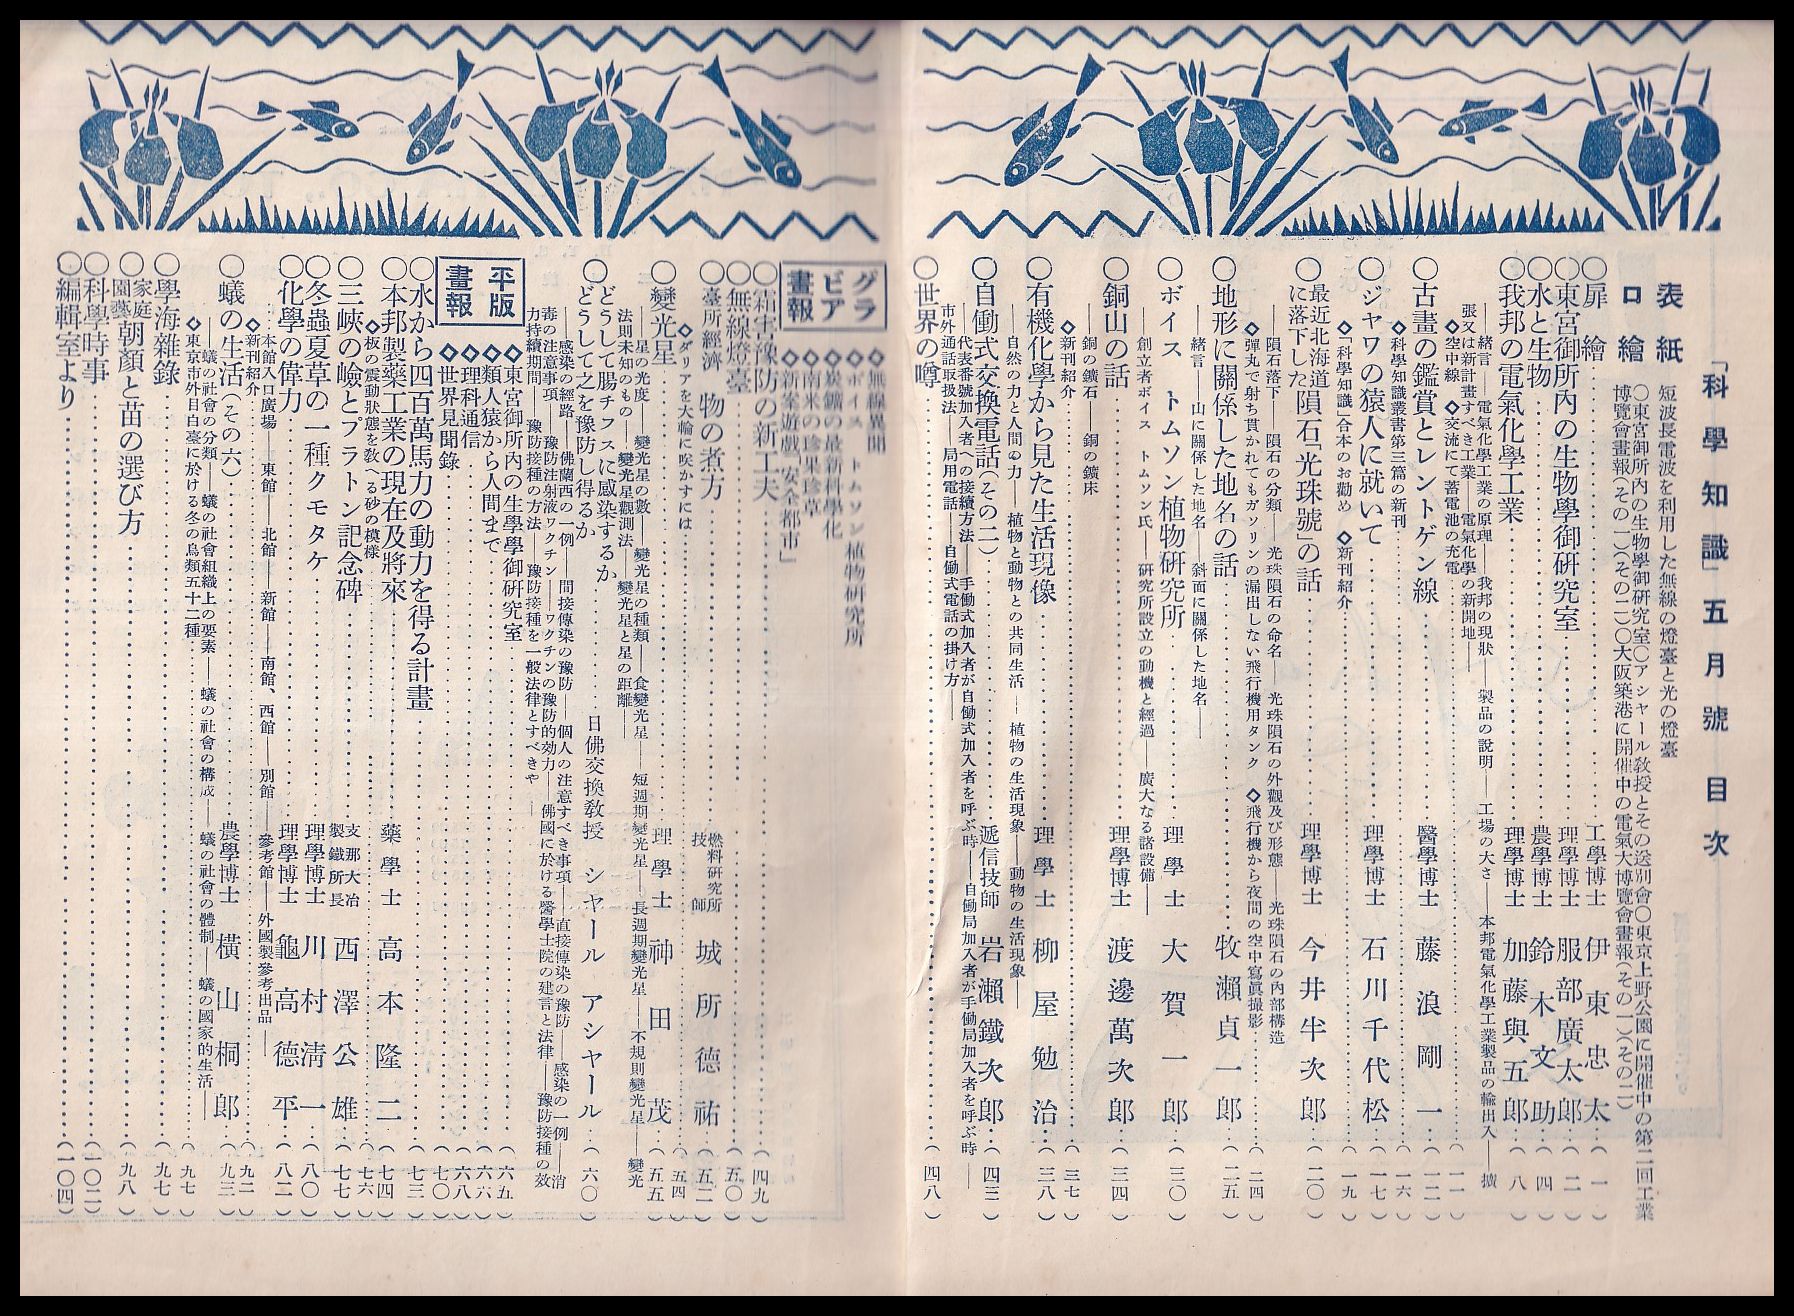 「科學知識」五月號 目次
表紙 短波長電波を利用した無線の燈臺と光の燈臺
口繪 〇東宮御所內の生物學御硏究室〇アシャール敎授とその送別會〇東京上野公園に開催中の第二回工業
博覽會畫報(その一)(その二)〇大阪築港に開催中の電氣大博覽會畫報(その一)(その二)
〇扉繪 工學博士 伊東忠太(一)
〇東宮御所內の生物學御硏究室 理學博士 服部廣太郞(二)
〇水と生物 農學博士 鈴木文助(四)
〇我邦の電氣化學工業 理學博士 加藤與五郞(八)
緒言——電氣化學工業の原理——我邦の現狀——製品の說明——工場の大さ——本邦電氣化學工業製品の輸出入——擴
張又は新計畫すべき工業——電氣化學の新開地——
◇空中線 ◇交流にて蓄電池の充電(一一)
〇古畫の鑑賞とレントゲン線 醫學博士 藤浪剛一(一二)
◇科學知識叢書第三篇の新刊(一六)
〇ジャワの猿人に就いて 理學博士 石川千代松(一七)
◇「科學知識」合本のお勸め ◇新刊紹介(一九)
〇最近北海道に落下した隕石「光珠號」の話 理學博士 今井半次郞(二〇)
隕石落下——隕石の分類——光珠隕石の命名——光珠隕石の外觀及び形態——光珠隕石の內部構造
◇彈丸で射ち貫かれてもガソリンの漏出しない飛行機用タンク ◇飛行機から夜間の空中寫眞撮影(二四)
〇地形に關係した地名の話 牧瀨貞一郞(二五)
緒言——山に關係した地名——斜面に關係した地名——
〇ボイス トムソン植物硏究所 理學士 大賀一郞(三〇)
創立者ボイス トムソン氏——硏究所設立の動機と經過——廣大なる諸設備——
〇銅山の話 理學博士 渡邊萬次郞(三四)
銅の鑛石——銅の鑛床
◇新刊紹介(三七)
〇有機化學から見た生活現像 理學士 柳屋勉治(三八)
自然の力と人間の力——植物と動物との共同生活——植物の生活現象——動物の生活現象——
〇自働式交換電話(その二) 遞信技師 岩瀨鐵次郞(四三)
代表番號加入者への接續方法——手働式加入者が自働式加入者を呼ぶ時——自働局加入者が手働局加入者を呼ぶ時——
市外通話取扱法——局用電話——自働式電話の掛け方——
〇世界の噂(四八)
グラビア畫報
◇無線異聞
◇ボイス トムソン植物硏究所
◇炭鑛の最新科學化
◇南米の珍果珍草
◇新案遊戲「安全都市」
〇霜害豫防の新工夫(四九)
〇無線燈臺(五〇)
〇臺所經濟 物の煮方 燃料硏究所技師 城所德祐(五二)
◇ダリアを大輪に咲かすには(五四)
〇變光星 理學士 神田茂(五五)
——星の光度——變光星の數——變光星の種類——食變光星——短週期變光星——長週期變光星——不規則變光星——變光
法則未知のもの——變光星觀測法——變光星と星の距離——
〇どうして腸チフスに感染するか
どうして之を豫防し得るか 日佛交換敎授 シャール アシャール(六〇)
——感染の經路——佛蘭西の一例——間接傳染の豫防——個人の注意すべき事項——直接傳染の豫防——感染の一例——消
毒の注意事項——豫防注射液ワクチン——ワクチンの豫防的効力——佛國に於ける醫學士院の建言と法律——豫防接種の效
力持續期間——豫防接種の方法——豫防接種を一般法律とすべきや——
平版畫報
◇東宮御所內の生學學御硏究室(六五)
◇類人猿から人間まで(六六)
◇理科通信(六八)
◇世界見聞錄(七〇)
〇水から四百萬馬力の動力を得る計畫(七三)
〇本邦製藥工業の現在及將來 藥學士 高本隆二(七四)
◇板の震動狀態を敎へる砂の模樣(七六)
〇三峽の嶮とプラトン記念碑 支那大冶製鐵所長 西澤公雄(七七)
〇冬蟲夏草の一種クモタケ 理學博士 川村淸一(八〇)
〇化學の偉力 理學博士 龜高德平(八二)
——本館入口廣場——東館——北館——新館——南館、西館——別館——參考館——外國製參考出品——
◇新刊紹介(九二)
〇蟻の生活(その六) 農學博士 橫山桐郞(九三)
——蟻の社會の分類——蟻の社會組織上の要素——蟻の社會の構成——蟻の社會の體制——蟻の國家的生活——
◇東京市外目白臺に於ける冬の鳥類五十二種(九七)
〇學海雜錄(九七)
〇家庭園藝 朝顏と苗の選び方(九八)
〇科學時事(一〇二)
〇編輯室より(一〇四)